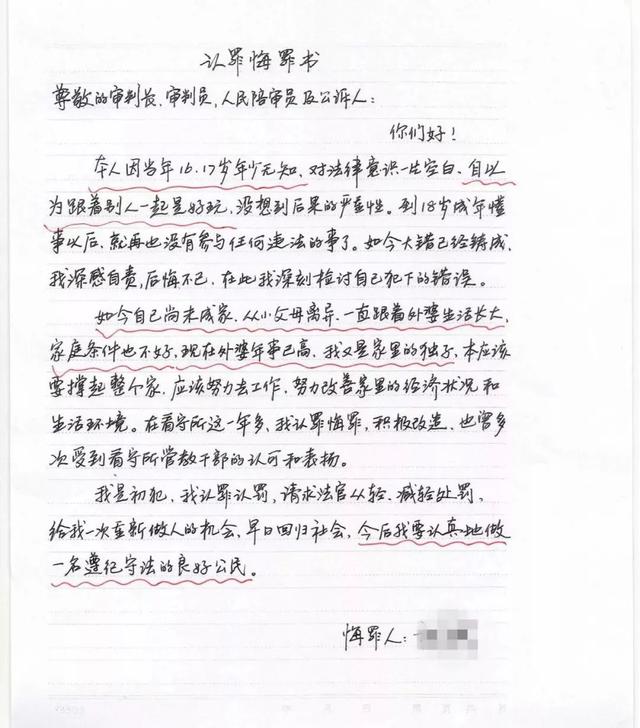 认罪悔罪书
尊敬的审判长、审判员,人民陪审员及公诉人:
你们好!
本人因当年16、17岁年少无知、对法律意识一片空白、自以
为跟着别人一起是好玩,没想到后果的严重性。到18岁成年懂
事以后、就再也没有参与任何违法的事了。如今大错已经铸成,
我深感自责,后悔不已、在此我深刻检讨自己犯下的错误。
如今自己尚未成家、从小父母离异、一直跟着外婆生活长大,
家庭条件也不好,现在外婆年事已高、我又是家里的独子,本应该
要撑起整个家、应该努力去工作、努力改善家里的经济状况和
生活环境。在看守所这一年多、我认罪悔罪,积极改造、也曾多
次受到看守所管教干部的认可和表扬。
我是初犯、我认罪认罚,请求法官从轻、减轻处罚,
给我一次重新做人的机会、早日回归社会,今后我要认真地做
一名遵纪守法的良好公民。
悔罪人: